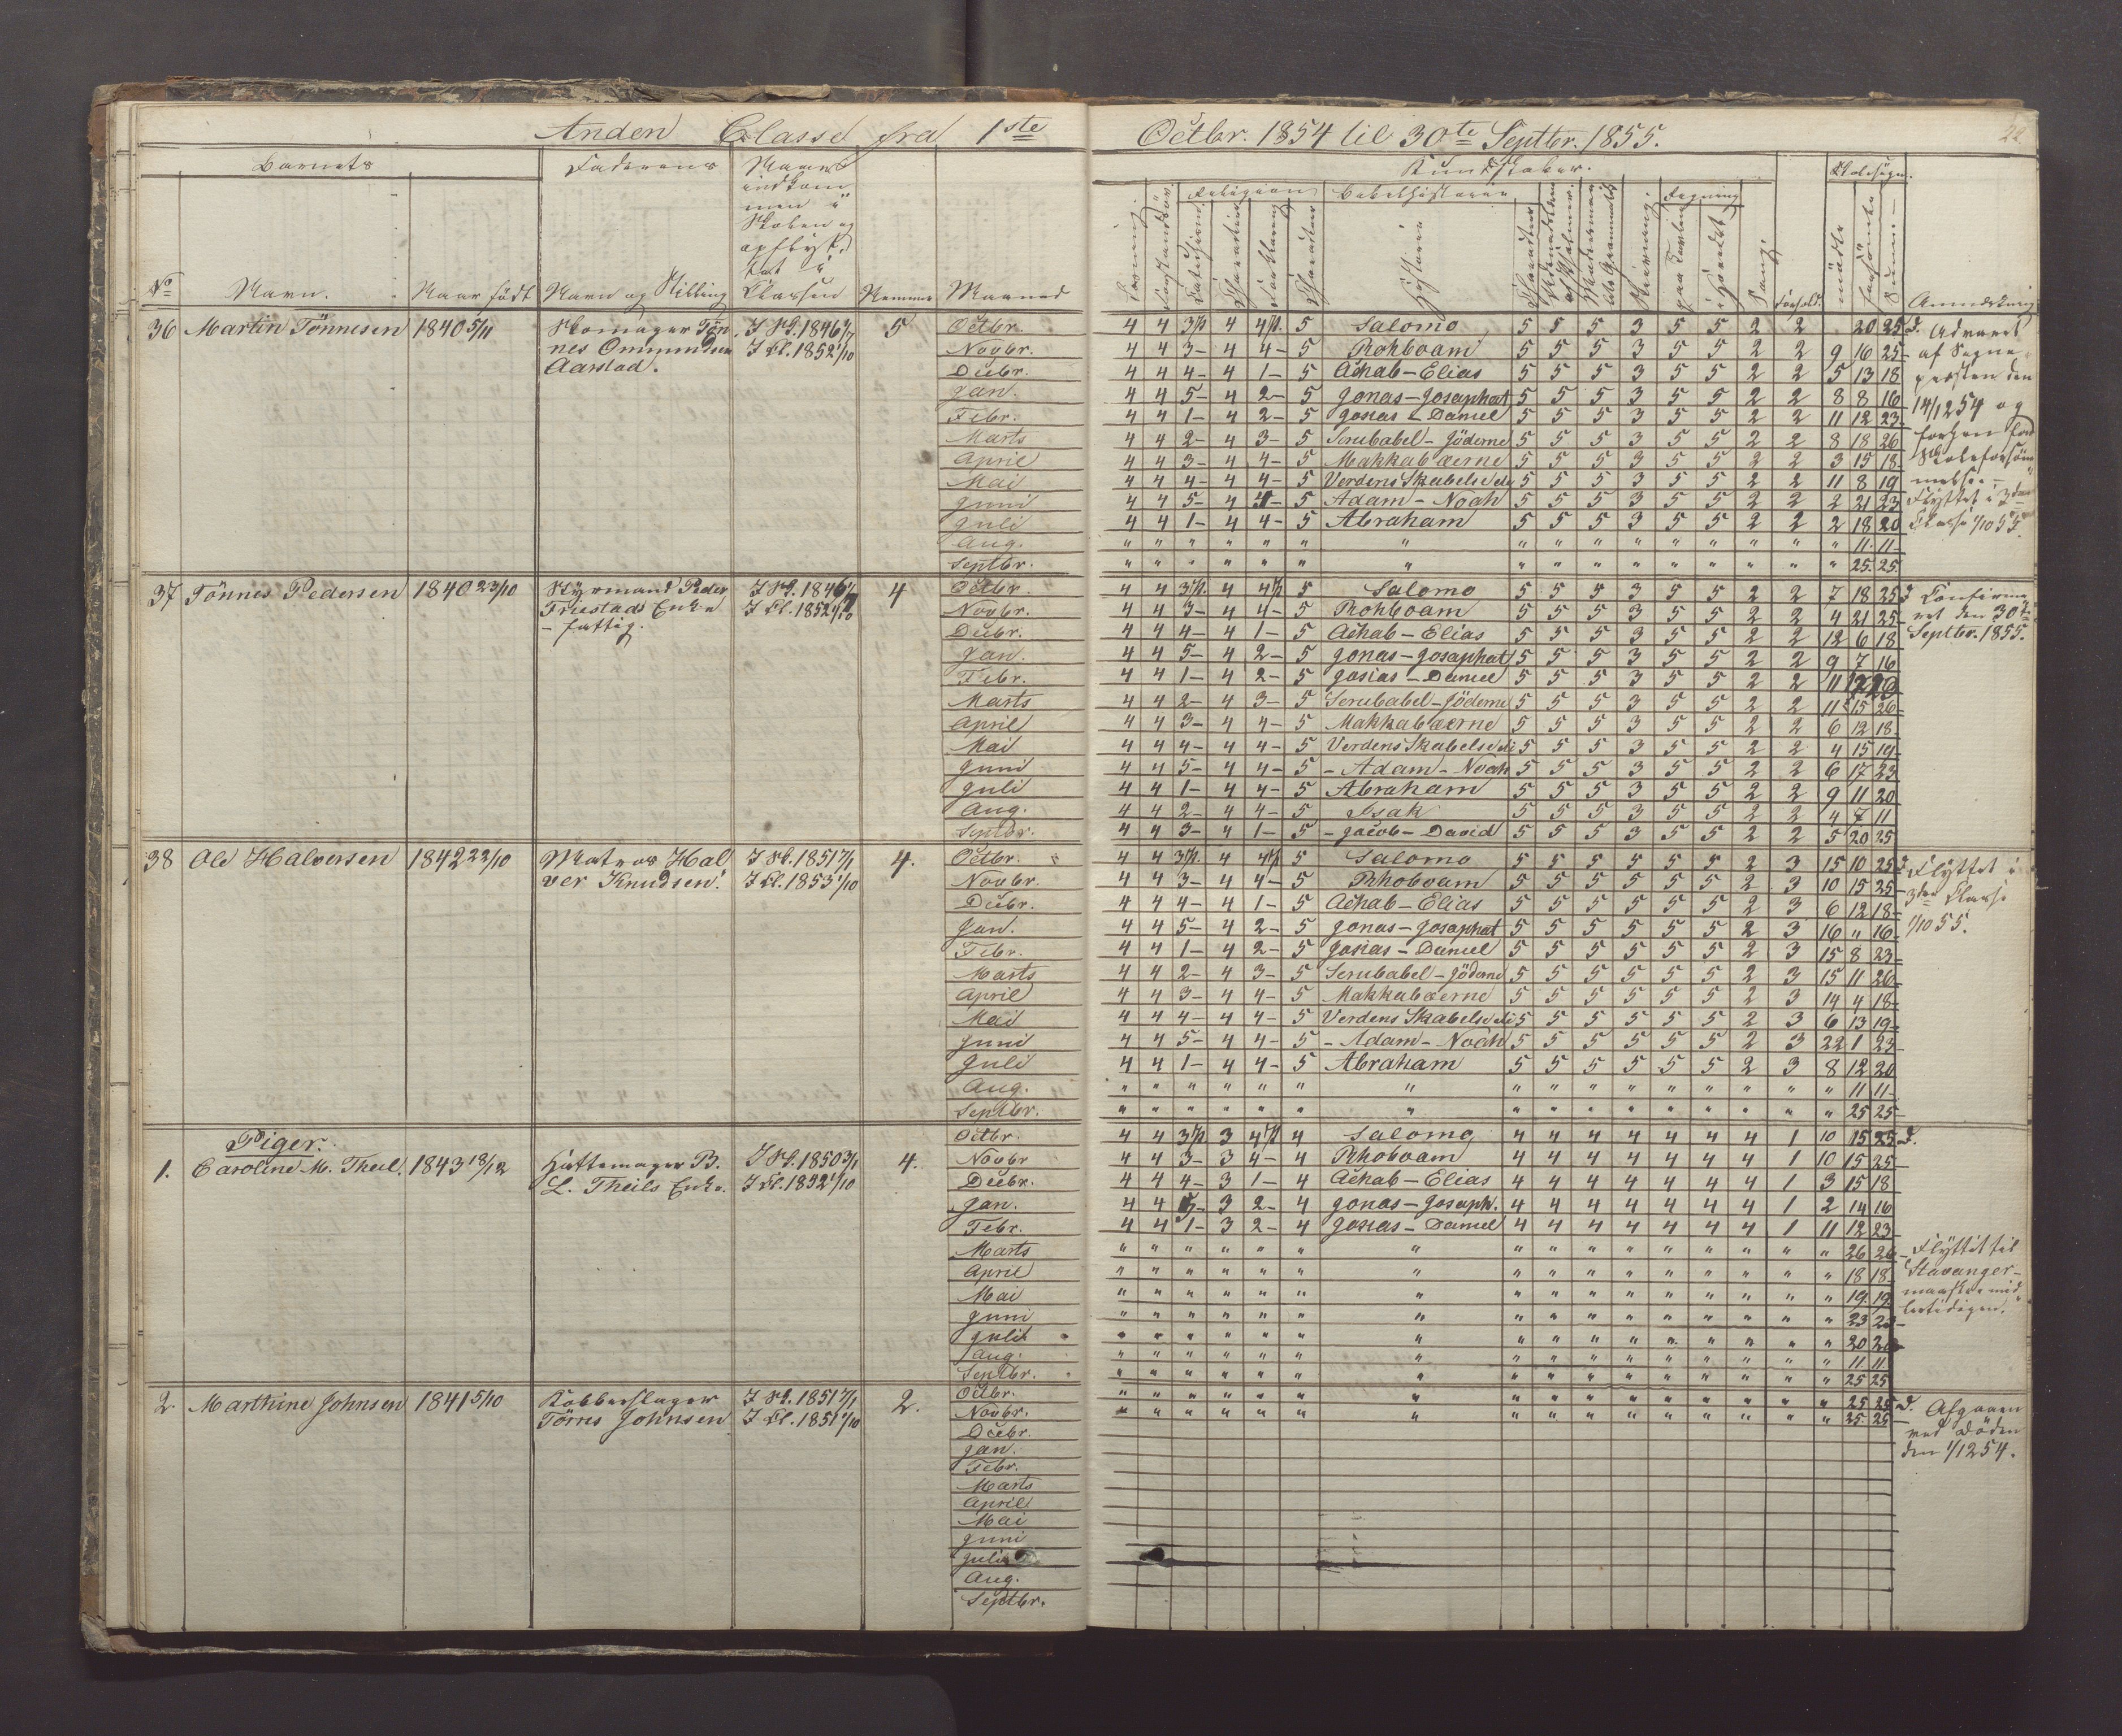 Anden Classe fra 1ste Octbr. 1854 til 30te Septbr. 1855.
22
Barnets Faderens Naar Kundskaber. Skolesøgn.
indkom
men i
Skolen og
opflyt
tet i
Religion Bibelhistorie Regning
No Navn. Naar født Navn og Stilling Classen Nemme Maaned Historie Sang Forhold mødte forsømte Sum Anmærkning
36 Martin Tönnesen 1840 5/11 Skomager Tøn I Sk. 1846 1/7 5 Octbr. 4 4 3 P. 4 4 P. 5 Salomo 5 5 5 3 5 5 2 2 20 25 d. Advaret
nes Ommundsen I Cl. 1852 1/10 Novbr. 4 4 3 - 4 4 - 5 Rohboam 5 5 5 3 5 5 2 2 9 16 25 af Sogne
Aarstad. Decbr. 4 4 4 - 4 1 - 5 Achab - Elias 5 5 5 3 5 5 2 2 5 13 18 præsten den
Jan. 4 4 5 - 4 2 - 5 Jonas - Josaphat 5 5 5 3 5 5 2 2 8 8 16 14/12 54 og
Febr. 4 4 1 - 4 2 - 5 Josias - Daniel 5 5 5 3 5 5 2 2 11 12 23
Marts 4 4 2 - 4 3 - 5 Serubabel - Jöderne 5 5 5 3 5 5 2 2 8 18 26
April 4 4 3 - 4 4 - 5 Makkabæerne 5 5 5 3 5 5 2 2 3 15 18 Skoleforsöm
Mai 4 4 4 - 4 4 - 5 Verdens Skabelse 5 5 5 3 5 5 2 2 11 8 19 melse -
Juni 4 4 5 - 4 4 - 5 Adam - Noah 5 5 5 3 5 5 2 2 2 21 23 Flyttet i 3die
Juli 4 4 1 - 4 4 - 5 Abraham 5 5 5 3 5 5 2 2 2 18 20 Classe 1/10 55.
Aug. " " " " " " " " " " " " " " " " 11 11
Septbr. " " " " " " " " " " " " " " " " 25 25
37 Tönnes Pedersen 1840 23/10 Styrmand Peder I Sk. 1846 1/7 4 Octbr. 4 4 3 P. 4 4 P. 5 Salomo 5 5 5 3 5 5 2 2 7 18 25 d Confirme
Friestads Enke I Cl. 1852 1/10 Novbr. 4 4 3 - 4 4 - 5 Rohboam 5 5 5 3 5 5 2 2 4 21 25 ret den 30te
- fattig. Decbr. 4 4 4 - 4 1 - 5 Achab - Elias 5 5 5 3 5 5 2 2 12 6 18 Septbr. 1855.
Jan. 4 4 5 - 4 2 - 5 Jonas - Josaphat 5 5 5 3 5 5 2 2 9 7 16
Febr. 4 4 1 - 4 2 - 5 Josias - Daniel 5 5 5 3 5 5 2 2 11 12 23
Marts 4 4 2 - 4 3 - 5 Serubabel - Jöderne 5 5 5 3 5 5 2 2 11 15 26
April 4 4 3 - 4 4 - 5 Makkabæerne 5 5 5 3 5 5 2 2 6 12 18
Mai 4 4 4 - 4 4 - 5 Verdens Skabelse 5 5 5 3 5 5 2 2 4 15 19
Juni 4 4 5 - 4 4 - 5 - Adam - Noah 5 5 5 3 5 5 2 2 6 17 23
Juli 4 4 1 - 4 4 - 5 Abraham 5 5 5 3 5 5 2 2 9 11 20
Aug. 4 4 2 - 4 4 - 5 Isak 5 5 5 3 5 5 2 2 4 7 11
Septbr. 4 4 3 - 4 1 - 5 - Jacob - David 5 5 5 3 5 5 2 2 5 20 25
38 Ole Halversen 1842 22/10 Matros Hal I Sk. 1851 7/1 4. Octbr. 4 4 3 P. 4 4 P. 5 Salomo 5 5 5 5 5 5 2 3 15 10 25 d. Flyttet i
ver Knudsen. I Cl. 1853 1/10 Novbr. 4 4 3 - 4 4 - 5 Rhoboam 5 5 5 5 5 5 2 3 10 15 25 3die Classe
Decbr. 4 4 4 - 4 1 - 5 Achab - Elias 5 5 5 5 5 5 2 3 6 12 18 1/10 55.
Jan. 4 4 5 - 4 2 - 5 Jonas - Josaphat 5 5 5 5 5 5 2 3 16 " 16
Febr. 4 4 1 - 4 2 - 5 Josias - Daniel 5 5 5 5 5 5 2 3 15 8 23
Marts 4 4 2 - 4 3 - 5 Serubabel - Jöderne 5 5 5 5 5 5 2 3 15 11 26
April 4 4 3 - 4 4 - 5 Makkabæerne 5 5 5 5 5 5 2 3 14 4 18
Mai 4 4 4 - 4 4 - 5 Verdens Skabelse 5 5 5 5 5 5 2 3 6 13 19
Juni 4 4 5 - 4 4 - 5 - Adam - Noah 5 5 5 5 5 5 2 3 22 1 23
Juli 4 4 1 - 4 4 - 5 Abraham 5 5 5 5 5 5 2 3 8 12 20
Aug. " " " " " " " " " " " " " " " " 11 11
Septbr. " " " " " " " " " " " " " " " " 25 25
Piger. Octbr. 4 4 3 P. 3 4 P. 4 Salomo 4 4 4 4 4 4 4 1 10 15 25 d.
1. Caroline M. Theil. 1843 18/12 Hattemager B. I Sk. 1850 3/1 4. Novbr 4 4 3 - 3 4 - 4 Rhoboam 4 4 4 4 4 4 4 1 10 15 25
L. Theils Enke. I Cl. 1852 1/10 Decbr. 4 4 4 - 3 1 - 4 Achab - Elias 4 4 4 4 4 4 4 1 3 15 18
Jan. 4 4 5 - 3 2 - 4 Jonas - Josaph. 4 4 4 4 4 4 4 1 2 14 16
Febr. 4 4 1 - 3 2 - 4 Josias - Daniel 4 4 4 4 4 4 4 1 11 12 23
Marts " " " " " " " " " " " " " " " " 26 26 - Flyttet til
April " " " " " " " " " " " " " " " " 18 18 Stavanger -
Mai " " " " " " " " " " " " " " " " 19 19
Juni " " " " " " " " " " " " " " " " 23 23
Juli " " " " " " " " " " " " " " " " 20 20
Aug. " " " " " " " " " " " " " " " " 11 11
Septbr. " " " " " " " " " " " " " " " " 25 25
2. Marthine Johnsen 1841 5/10 Kobberslager I Sk. 1851 7/1 2. Octbr. " " " " " " " " " " " " " " " " 25 25 d. Afgaaen
Törres Johnsen I Cl. 1851 1/10 Novbr. " " " " " " " " " " " " " " " " 25 25 ved Døden
Decbr. den 1/12 54.
Jan.
Febr.
Marts
April
Mai
Juni
Juli
Aug.
Septbr.